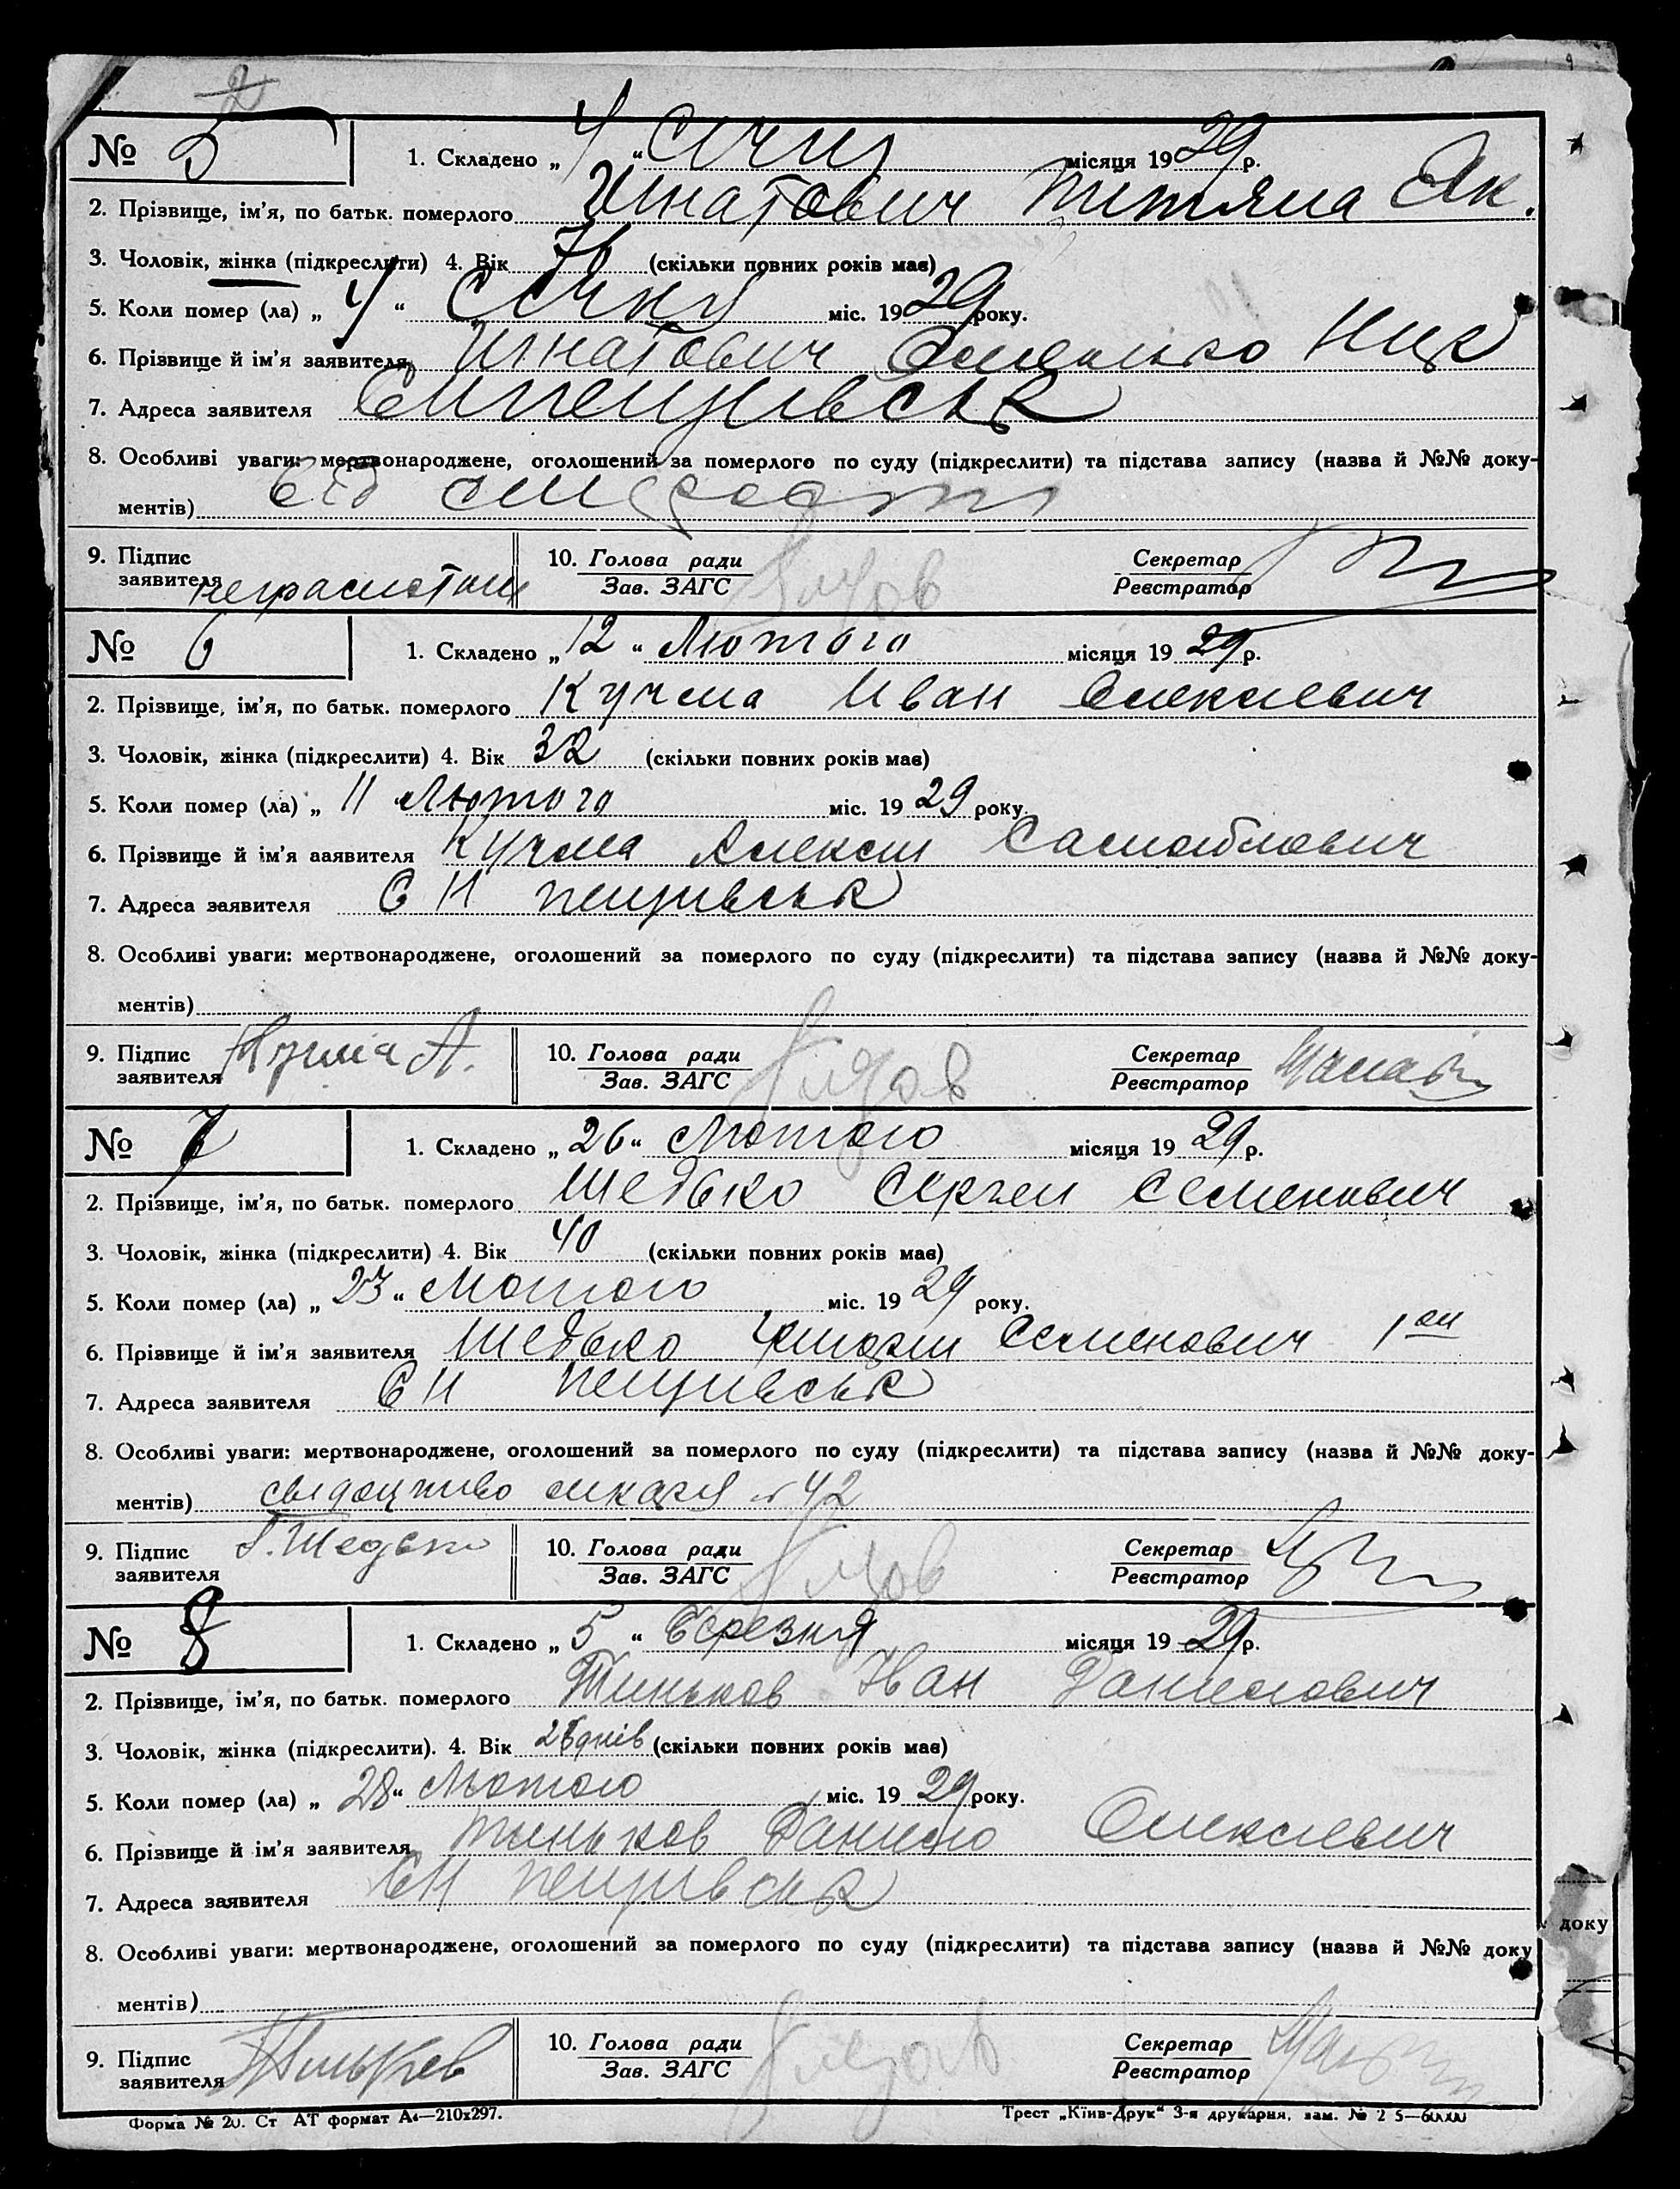 2
№ 5
1. Складено „ 4 “ Січня місяця 1929 р.
2. Прізвище, ім’я, по батьк. померлого Игнатович Титяна Як.
3. Чоловік, жінка (підкреслити) 4. Вік 76 (скільки повних років має)
5. Коли помер (ла) „ 4 “ Січня міс. 1929 року.
6. Прізвище й ім’я заявителя Игнатович
7. Адреса заявителя Єнпещивськ
8. Особливі уваги: мертвонароджене, оголошений за померлого по суду (підкреслити) та підстава запису (назва й №№ доку-
ментів) від старости
9. Підпис заявителя
10. Голова ради
Зав. ЗАГС
Секретар
Реєстратор
№ 6
1. Складено „ 12 “ Лютого місяця 1929 р.
2. Прізвище, ім’я, по батьк. померлого Кучма Иван Олексієвич
3. Чоловік, жінка (підкреслити) 4. Вік 32 (скільки повних років має)
5. Коли помер (ла) „ 11 Лютого міс. 1929 року.
6. Прізвище й ім’я заявителя Кучма Алексій Самойлович
7. Адреса заявителя Є Н пещивськ
8. Особливі уваги: мертвонароджене, оголошений за померлого по суду (підкреслити) та підстава запису (назва й №№ доку-
ментів)
9. Підпис заявителя Кучма А.
10. Голова ради
Зав. ЗАГС
Секретар
Реєстратор
№ 7
1. Складено „ 26 “ Лютого місяця 1929 р.
2. Прізвище, ім’я, по батьк. померлого Шедько Сергей Семенович
3. Чоловік, жінка (підкреслити) 4. Вік 40 (скільки повних років має)
5. Коли помер (ла) „ 23 “ Лютого міс. 1929 року.
6. Прізвище й ім’я заявителя Шедько Семенович
7. Адреса заявителя Є Н пещивськ
8. Особливі уваги: мертвонароджене, оголошений за померлого по суду (підкреслити) та підстава запису (назва й №№ доку-
ментів) свидоцтво лікаря № 42
9. Підпис заявителя Г. Шедько
10. Голова ради
Зав. ЗАГС
Секретар
Реєстратор
№ 8
1. Складено „ 5 “ Березня місяця 1929 р.
2. Прізвище, ім’я, по батьк. померлого Тиньков Іван Данилович
3. Чоловік, жінка (підкреслити). 4. Вік 28 днів (скільки повних років має)
5. Коли помер (ла) „ 28 “ Лютого міс. 1929 року.
6. Прізвище й ім’я заявителя Тиньков Данило Олексієвич
7. Адреса заявителя Є Н пещивськ
8. Особливі уваги: мертвонароджене, оголошений за померлого по суду (підкреслити) та підстава запису (назва й №№ доку
ментів)
9. Підпис заявителя Тиньков
10. Голова ради
Зав. ЗАГС
Секретар
Реєстратор
доку
Форма № 20. Ст АТ формат А4—210х297.
Трест „Київ-Друк“ 3-я друкарня, зам. №